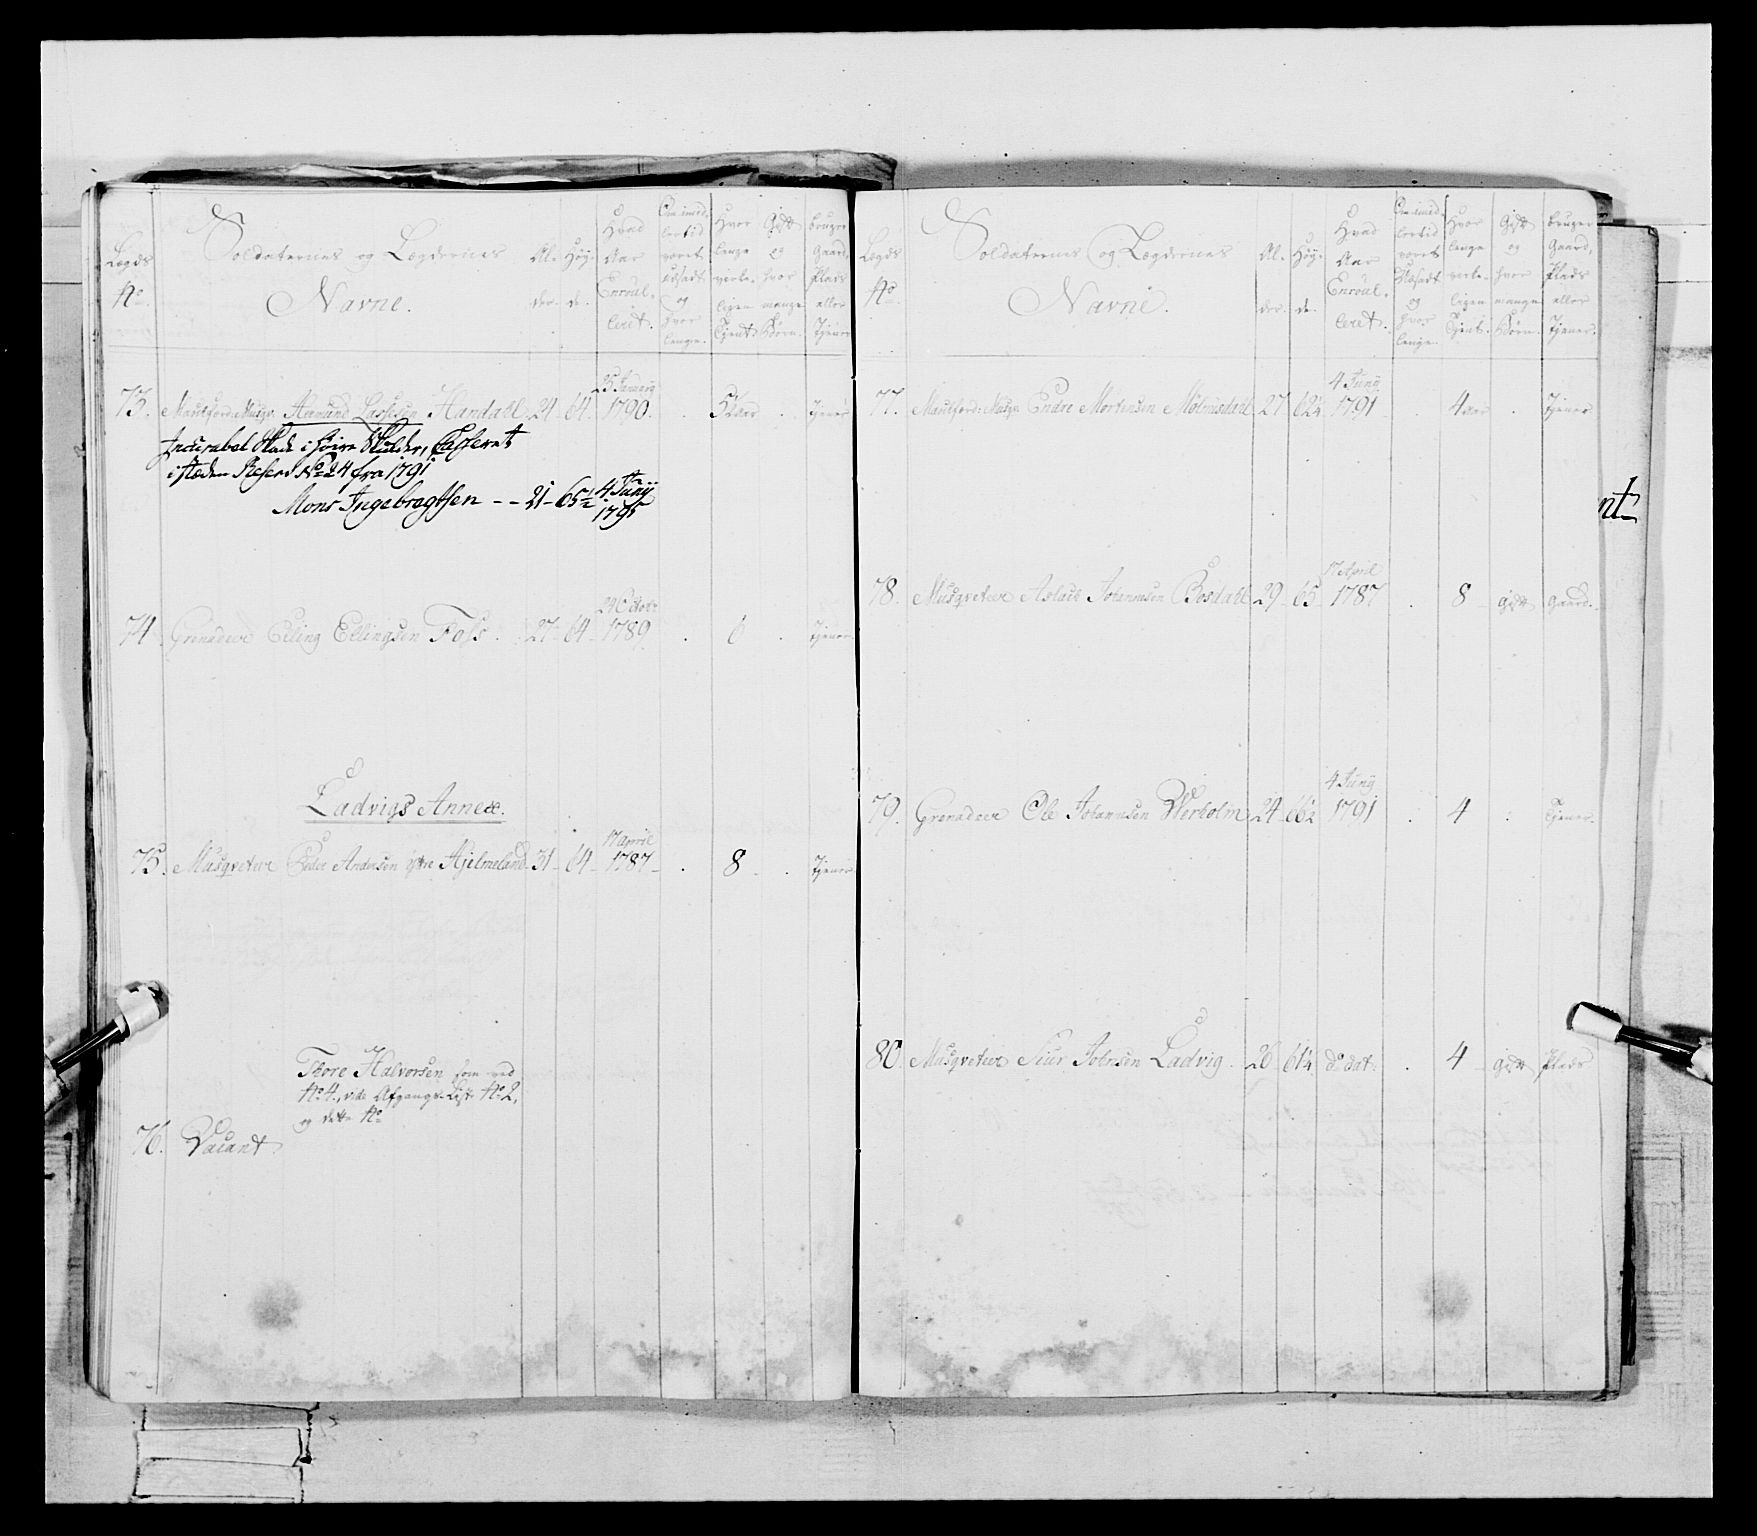 Lægds No
Soldaternes og Lægdernes Navne.
Al- der.
Høy- de.
Hvad Aar Enroul- leret.
Om imid- lertid været udsadt og hvor lenge.
Hvor lenge virke- ligen Tjent.
Gift og hvor mange Børn.
bruger Gaard, Plads eller Tjener.
73. Hermund Lassesen Handahl 24 64 25 January 1790. 5 Aar Tjener
Incurabel Skade i høire Skulder, Casseret
i steden Reserv No 24 fra 1791
Mons Ingebragtsen - - 21 - 65½ 4 Juny
1795
74. Grenadeer Elling Ellingsen Foss. 27 64 24 Octobr 1789 6 Tjener
Ladvigs Annex.
75. Musqveteer Peder Andersen ytre Hjelmeland 31 64 17 April 1787 8 Tjener
Thore Halvorsen som ved
No 4, vide Afgangs-List No 2,
og dette No
76. Vacant
Lægds No
Soldaternes og Lægdernes Navne.
Al- der.
Høy- de.
Hvad Aar Enroul- leret.
Om imid- lertid været Udsadt og hvor lenge.
Hvor lenge virke- ligen Tjent.
Gift og hvor mange Børn.
bruger Gaard, Plads eller Tjener.
77. Endre Mortensen Mølmisdahl 27 62½ 4 Juny 1791 4 Aar Tjener
nt
78. Musqveteer Aslack Johannesen Bosdahl 29 65 17 April 1787 8 gift gaard
79. Grenadeer Ole Johannesen Werholm 24 66½ 4 Juny 1791 4 Tjener
80. Musqveteer Siur Joensen Ladvig 26 61¼ do dat: 4 gift Plads